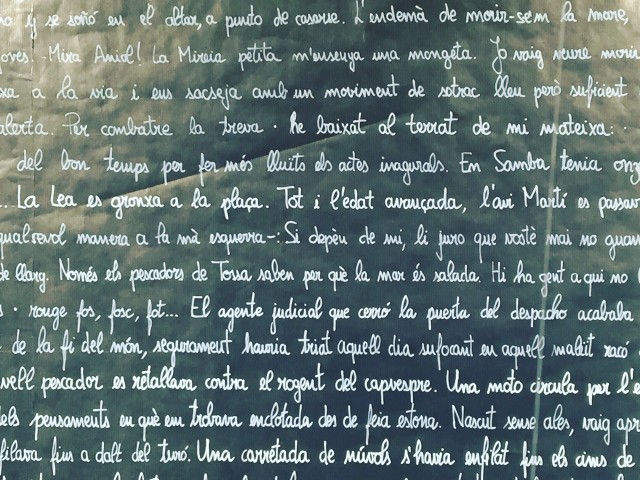 y se soñó en el altar, a punto de casarse. L'endemà de morir-se'm la mare,
joves! -Mira Aniol! La Mireia petita m'ensenya una mongeta. Jo vaig veure morir
a la via i ens sacseja amb un moviment de sotrac lleu però suficient
alerta. Per combatre la treva · he baixat al terrat de mi mateixa:
del bon temps per fer més lluïts els actes inagurals. En Samba tenia onz
.. La Lea es gronxa a la plaça. Tot i l'edat avançada, l'avi Martí es passav
qualsevol manera a la mà esquerra-: Si depèn de mi, li juro que vostè mai no guan
de llarg. Només els pescadors de Tossa saben per què la mar és salada. Hi ha gent a qui no
· rouge fos, fosc, fot... El agente judicial que cerró la puerta del despacho acababa
de la fi del món, segurament hauria triat aquell dia sufocant en aquell maleït racó
vell pescador es retallava contra el rogent del capvespre. Una moto circula per l'e
dels pensaments en què em trobava enclotada des de feia estona. Nascut sense ales, vaig apr
filava fins a dalt del turó. Una carretada de núvols s'havia enfilat fins els cims de